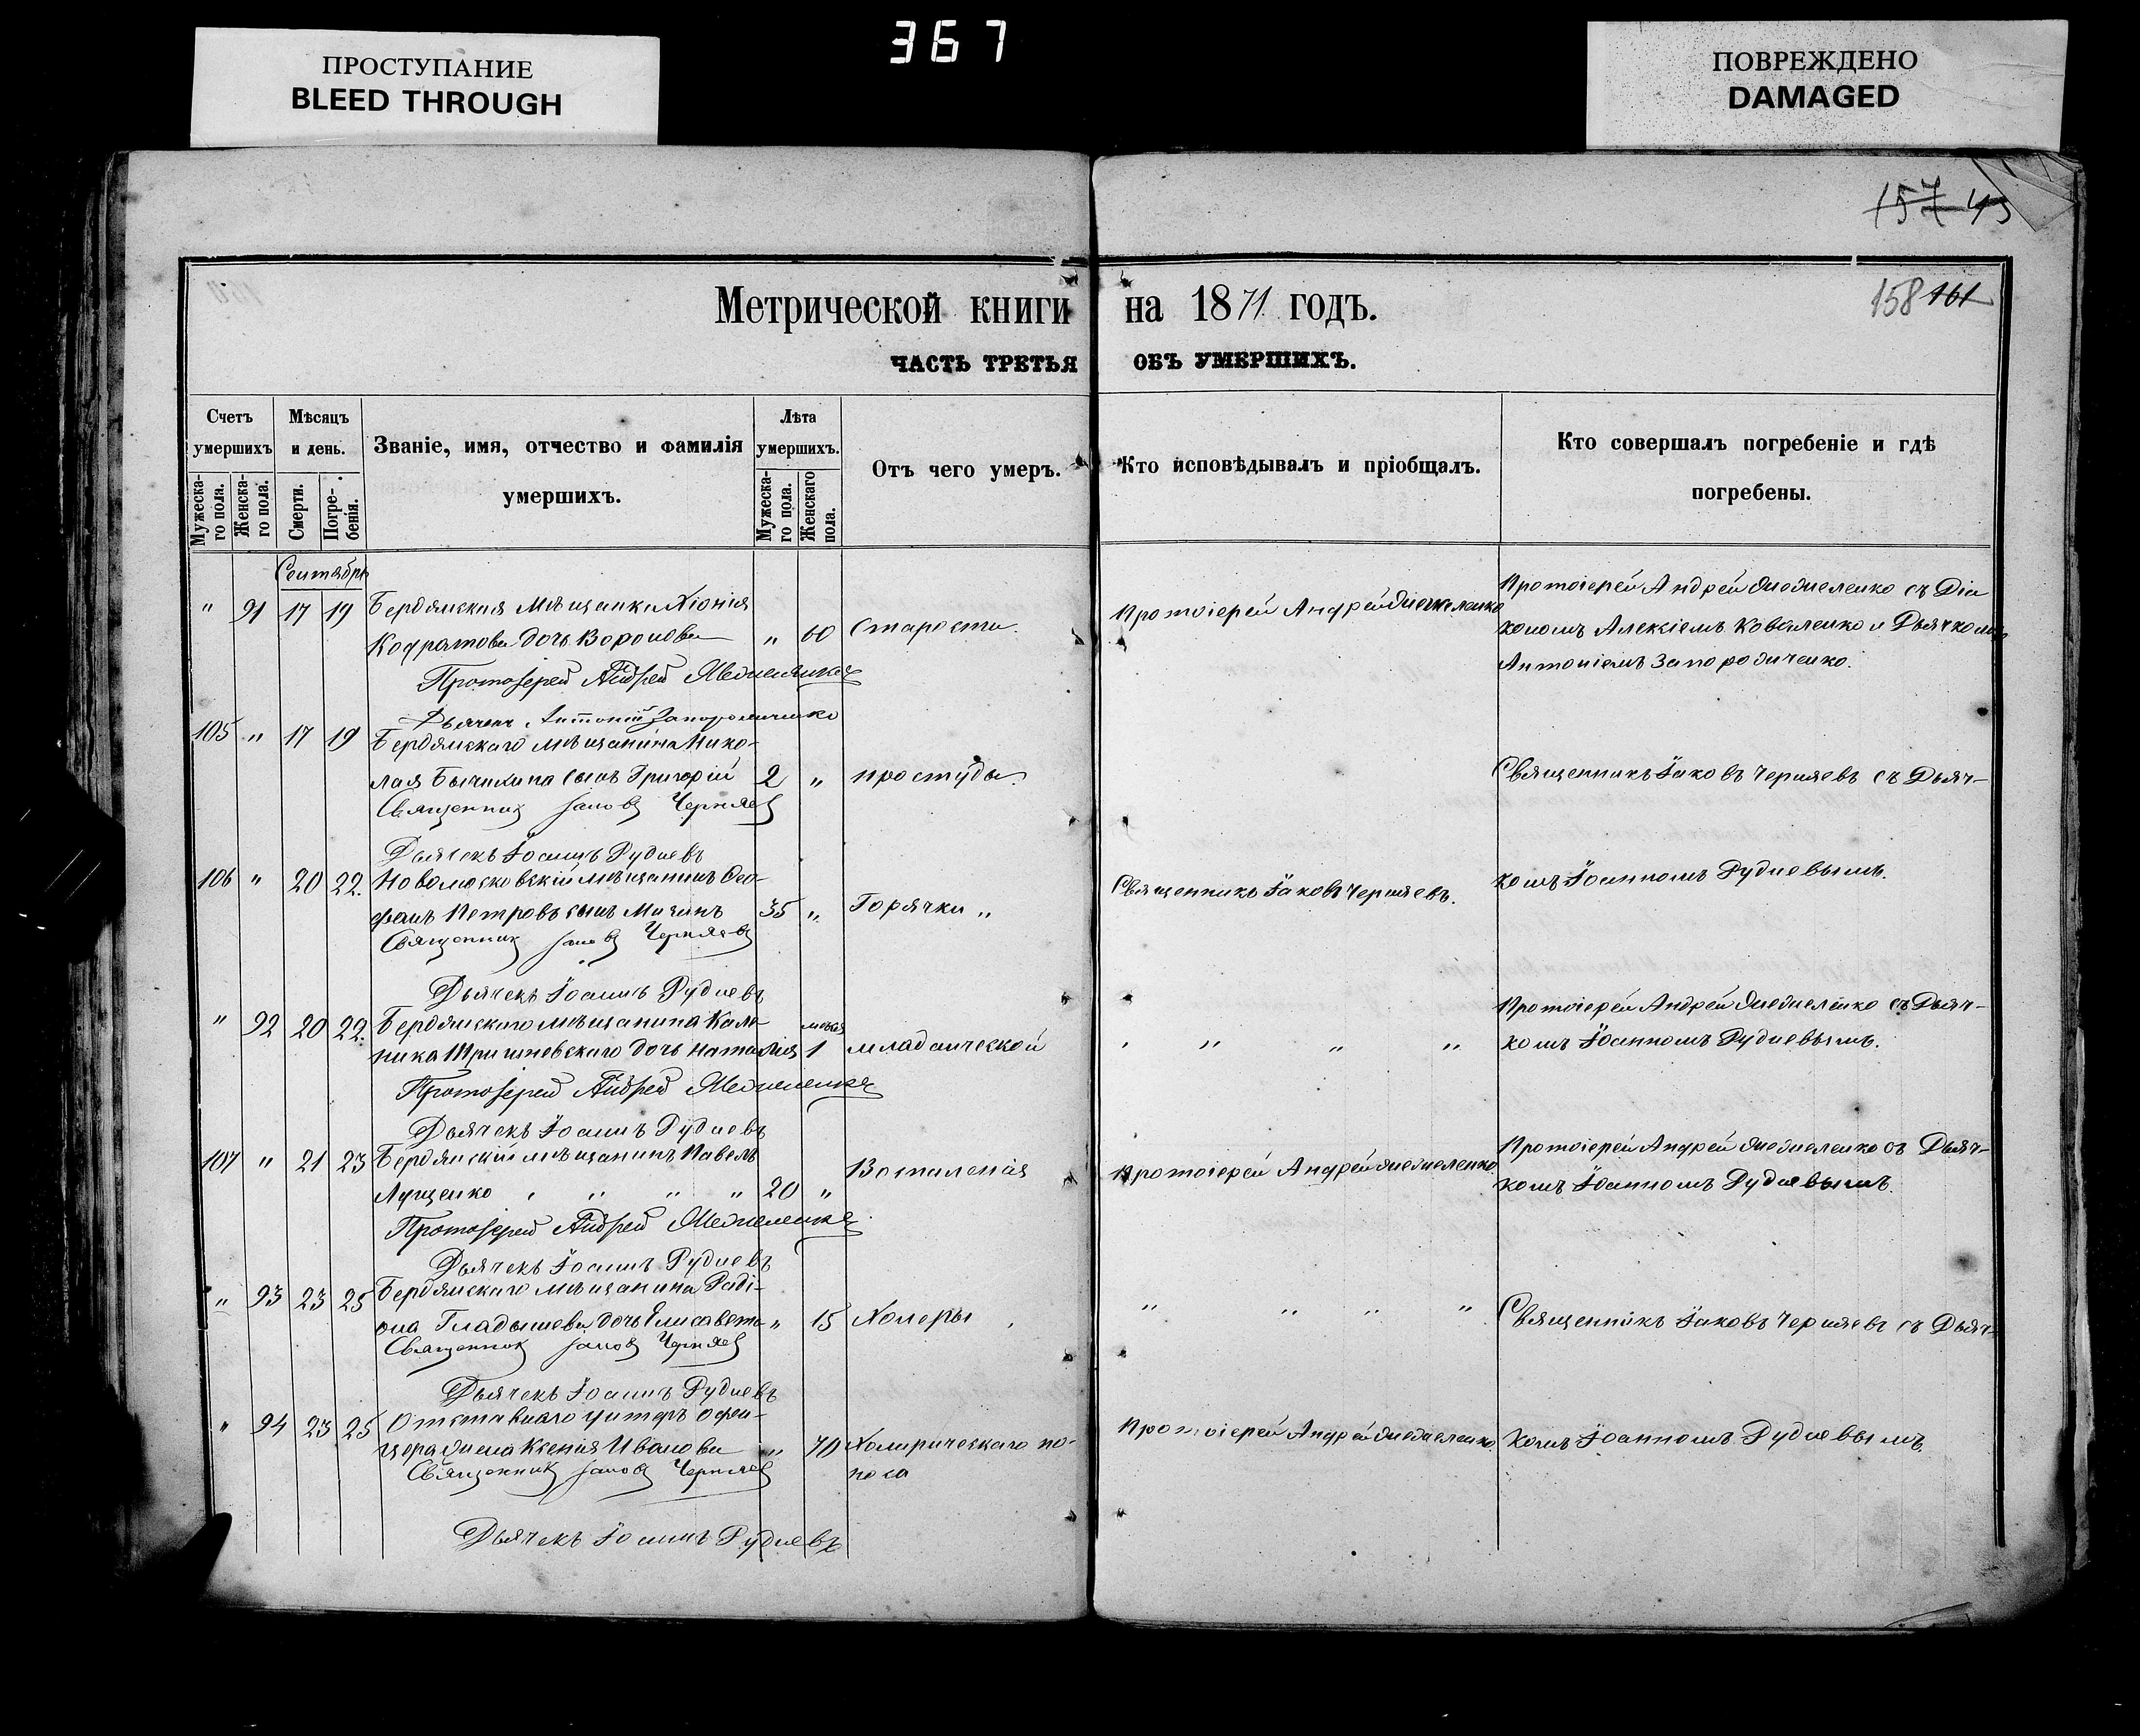 367
ПРОСТУПАНИЕ
BLEED THROUGH
ПОВРЕЖДЕНО
DAMAGED
157 43
158 161
Метрической книги на 1871 годъ.
ЧАСТЬ ТРЕТЬЯ ОБЪ УМЕРШИХЪ.
Счетъ умершихъ
Мужеска-го пола.
Женска-го пола.
Мѣсяцъ и день.
Смерти.
Погре-бенія.
Званіе, имя, отчество и фамилія умершихъ.
Лѣта умершихъ.
Мужеска-го пола.
Женскаго пола.
Отъ чего умеръ.
Кто исповѣдывалъ и пріобщалъ.
Кто совершалъ погребеніе и гдѣ погребены.
Сентябрь
" 91 17 19 Бердянская мѣщанка Хіонія
Кодратова дочь Воронова " 60 Старости.
Протоіерей Андрей
Протоіерей Андрей съ Діа
кономъ Алексіемъ Коваленко и Дьячкомъ
Антоніемъ Запорожченко.
Протоіерей Андрей
Дьячекъ Антоній Запорожченко
105 " 17 19 Бердянскаго мѣщанина Нико-
лая Бычихина сынъ Григорій 2 " простуды
Священникъ Іаковъ Черняевъ съ Дьяч-
Священникъ Іаковъ Черняевъ
Дьячекъ Іоаннъ Рудневъ
106 " 20 22. Новомосковскій мѣщанинъ Ѳео-
фанъ Петровъ сынъ 35 " Горячки "
Священникъ Іаковъ Черняевъ.
комъ Іоанномъ Рудневымъ.
Священникъ Іаковъ Черняевъ
Дьячекъ Іоаннъ Рудневъ
" 92 20 22. Бердянскаго мѣщанина Кале-
ника дочь Наталія 1 младенческой
" " " "
Протоіерей Андрей съ Дьяч-
комъ Іоанномъ Рудневымъ.
Протоіерей Андрей
Дьячекъ Іоаннъ Рудневъ
107 " 21 23 Бердянскій мѣщанинъ Павелъ
Лущенко " " " " 20 " Воспаленія
Протоіерей Андрей
Протоіерей Андрей съ Дьяч-
комъ Іоанномъ Рудневымъ.
Протоіерей Андрей
Дьячекъ Іоаннъ Рудневъ
" 93 23 25 Бердянскаго мѣщанина Раді-
она Гладышева дочь Елисавета " 15 Холеры
" " " "
Священникъ Іаковъ Черняевъ съ Дьяч-
Священникъ Іаковъ Черняевъ
Дьячекъ Іоаннъ Рудневъ
" 94 23 25 Отставнаго унтеръ офи-
цера жена Ксенія Иванова " 70 Холерическаго по-
носа
Протоіерей Андрей
комъ Іоанномъ Рудневымъ
Священникъ Іаковъ Черняевъ
Дьячекъ Іоаннъ Рудневъ